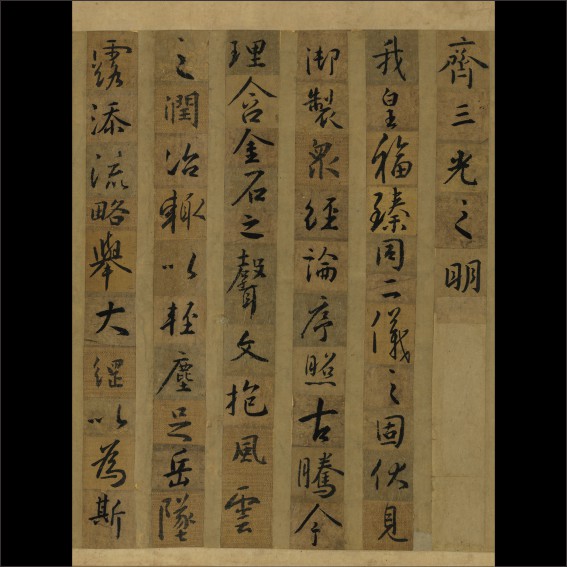 齊三光之明
我皇福臻同二儀之固伏見
御製衆經論序照古騰今
理含金石之聲文抱風雲
之潤治輒以輕塵足岳墜
露添流略舉大綱以為斯